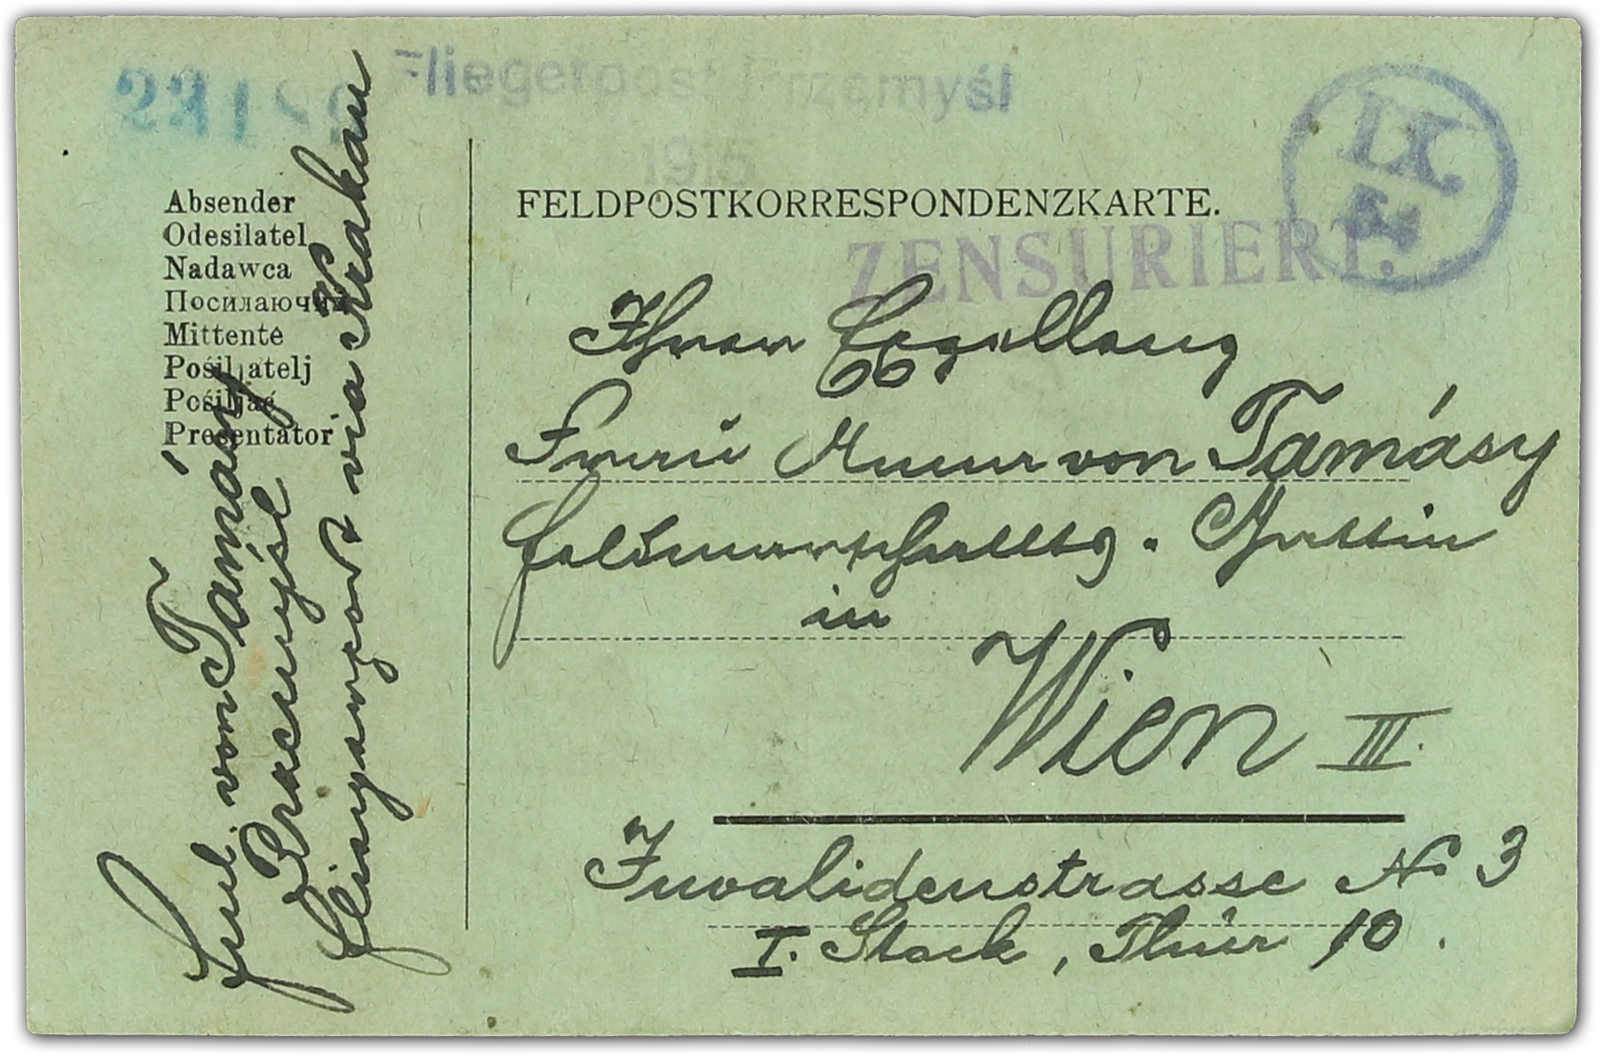 Fliegerpost Przemyśl
1915
IX
54
ZENSURIERT.
Absender
Odesilatel
Nadawca
Посилаючий
Mittente
Pošiljatelj
Pošiljač
Presentator
FML von Tamásy
Przemysl
Flugpost via Krakau
FELDPOSTKORRESPONDENZKARTE.
Ihrer Exzellenz
Frau Anna von Tamásy
Feldmarschallts. Gattin
in
Wien III.
Invalidenstrasse No 3
I. Stock, Thür 10.